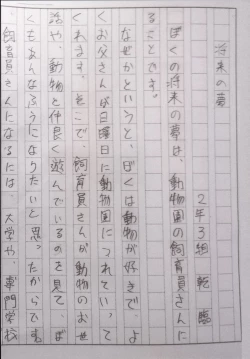 将来の夢
2年3組 乾 臨
ぼくの将来の夢は、動物園の飼育員さんに
なることです。
なぜかというと、ぼくは動物が好きで、よ
くお父さんが日曜日に動物園につれていって
くれます。そこで、飼育員さんが動物のお世
話や、動物と仲良く遊んでいるのを見て、ぼ
くもあんなふうになりたいと思ったからです。
飼育員さんになるには、大学や、専門学校